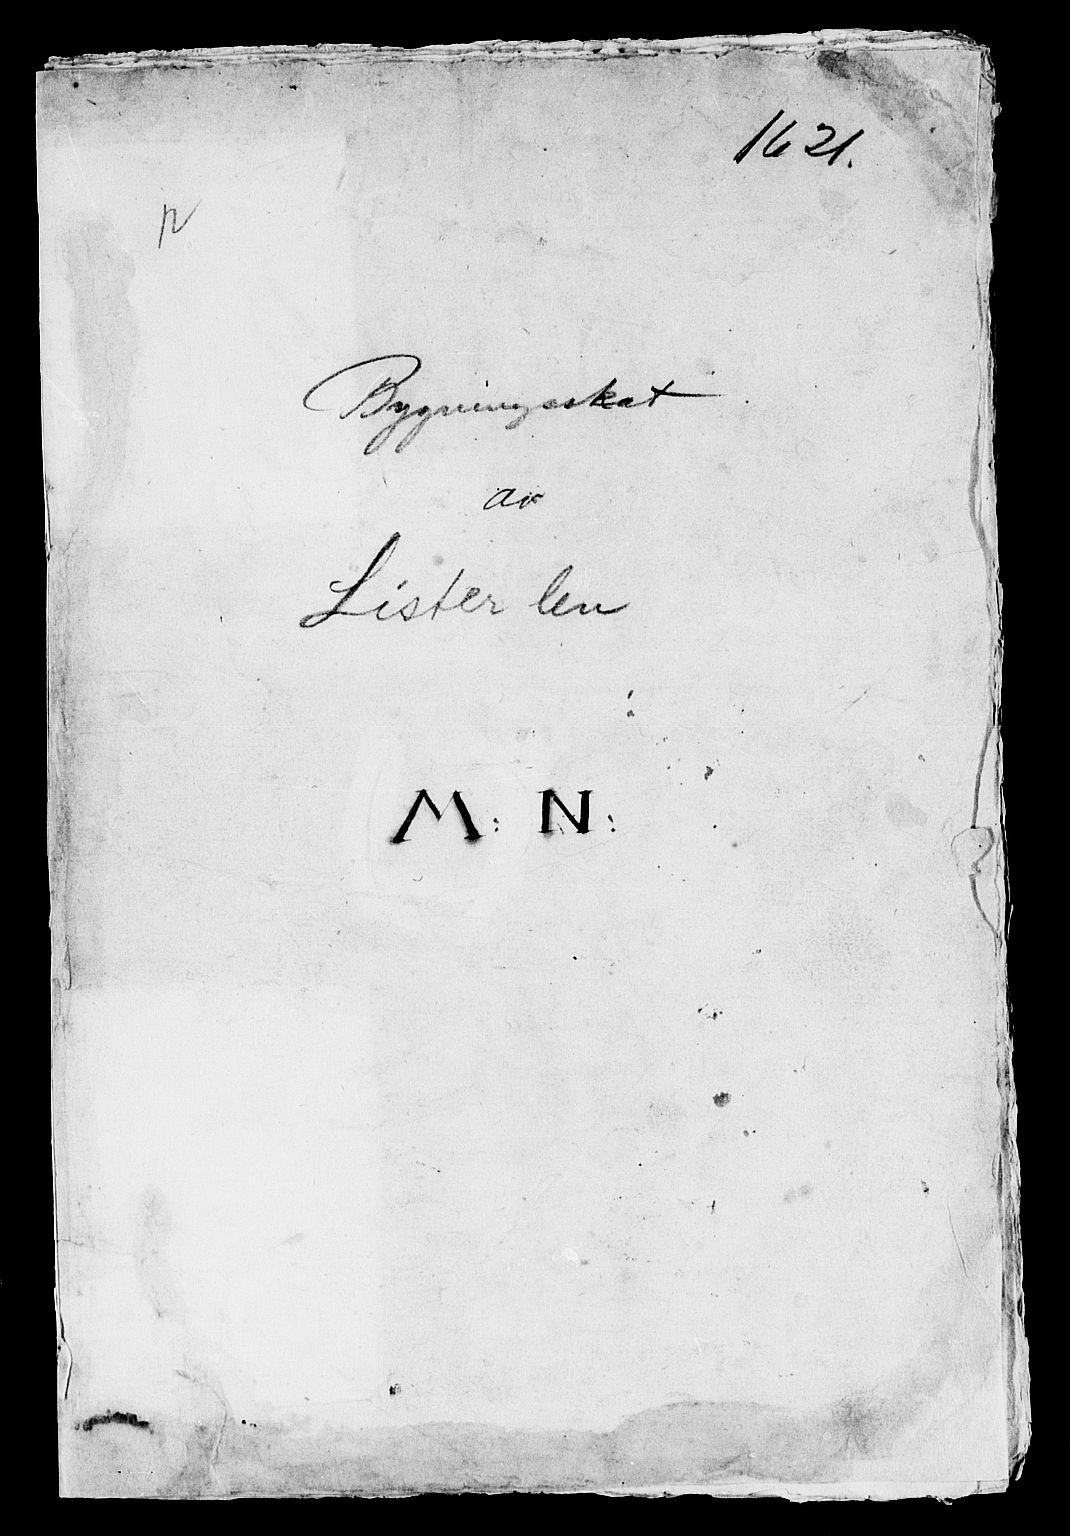 1621.
Bygningsskat
av
Lister len
M: N: